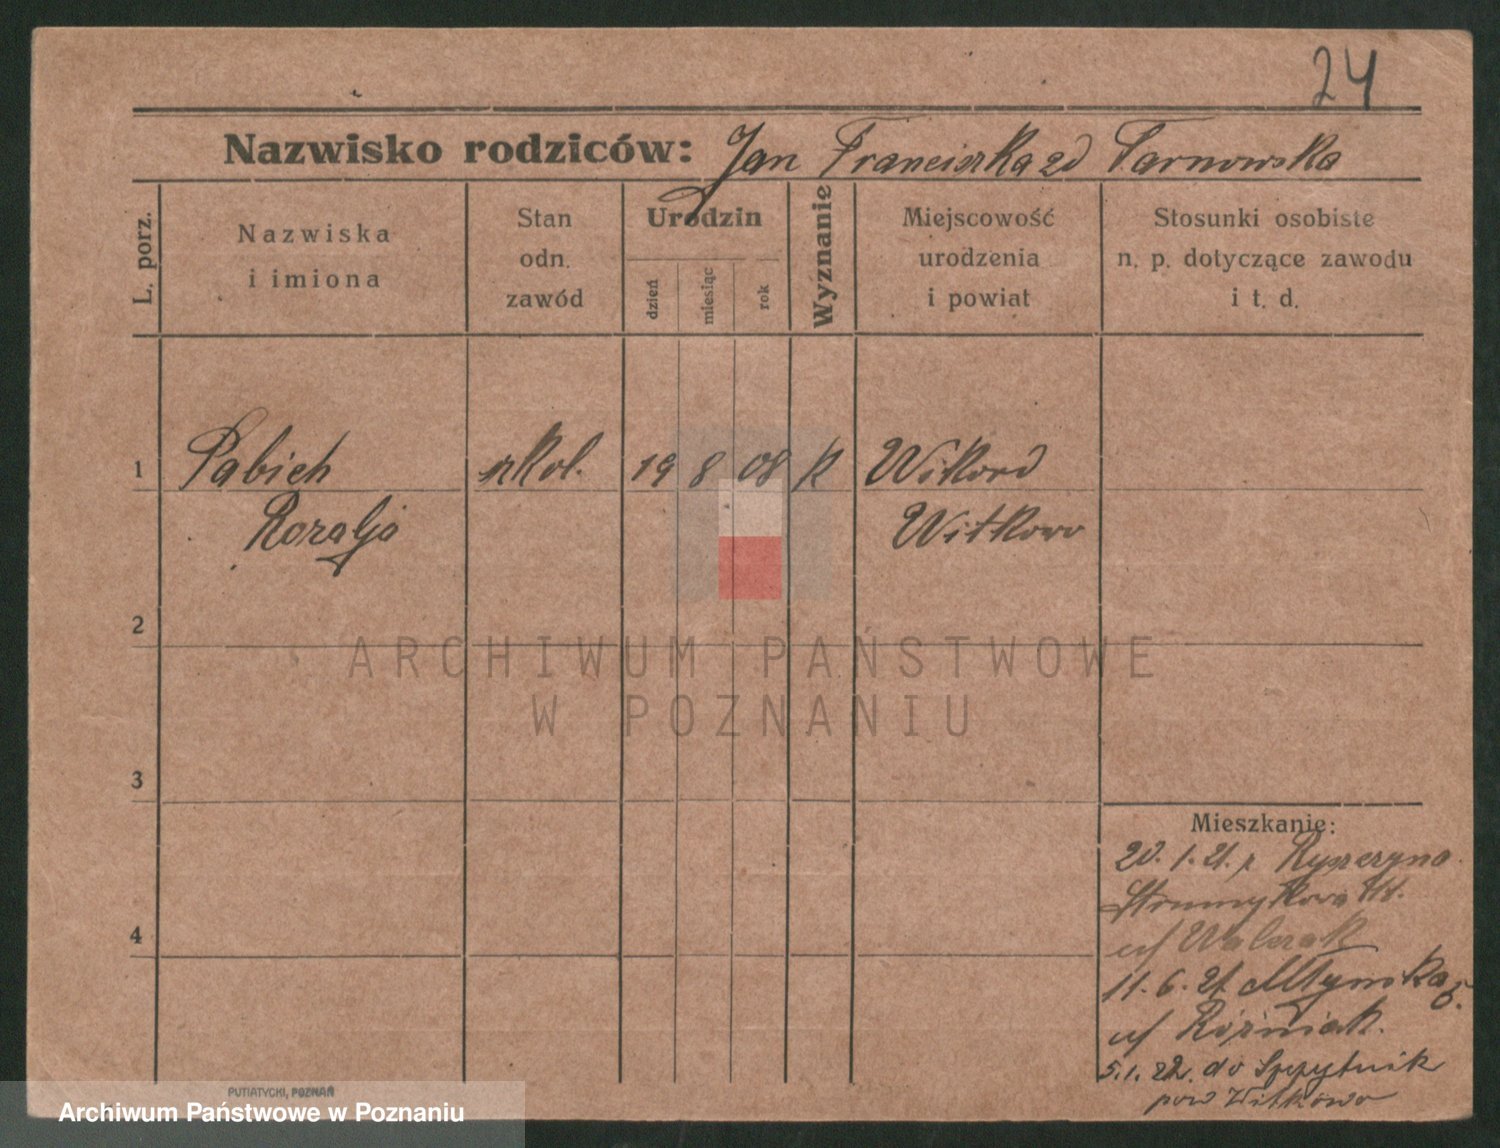 24
Nazwisko rodziców: Jan Franciszka zd Tarnowska
L. porz.
Nazwiska
i imiona
Stan
odn.
zawód
Urodzin
dzień
miesiąc
rok
Wyznanie
Miejscowość
urodzenia
i powiat
Stosunki osobiste
n. p. dotyczące zawodu
i t. d.
1 Pabich szkol. 19 8 08 k Witkowo
Rozalja Witkowo
2
ARCHIWUM PAŃSTWOWE
W POZNANIU
3
Mieszkanie:
20.1.21. z
Strumykowa
4
u/ Walczak
11.6.21 Młyńska 5.
u/ Różniak.
5.1.22. do
pow Witkowo
PUTIATYCKI, POZNAŃ
Archiwum Państwowe w Poznaniu